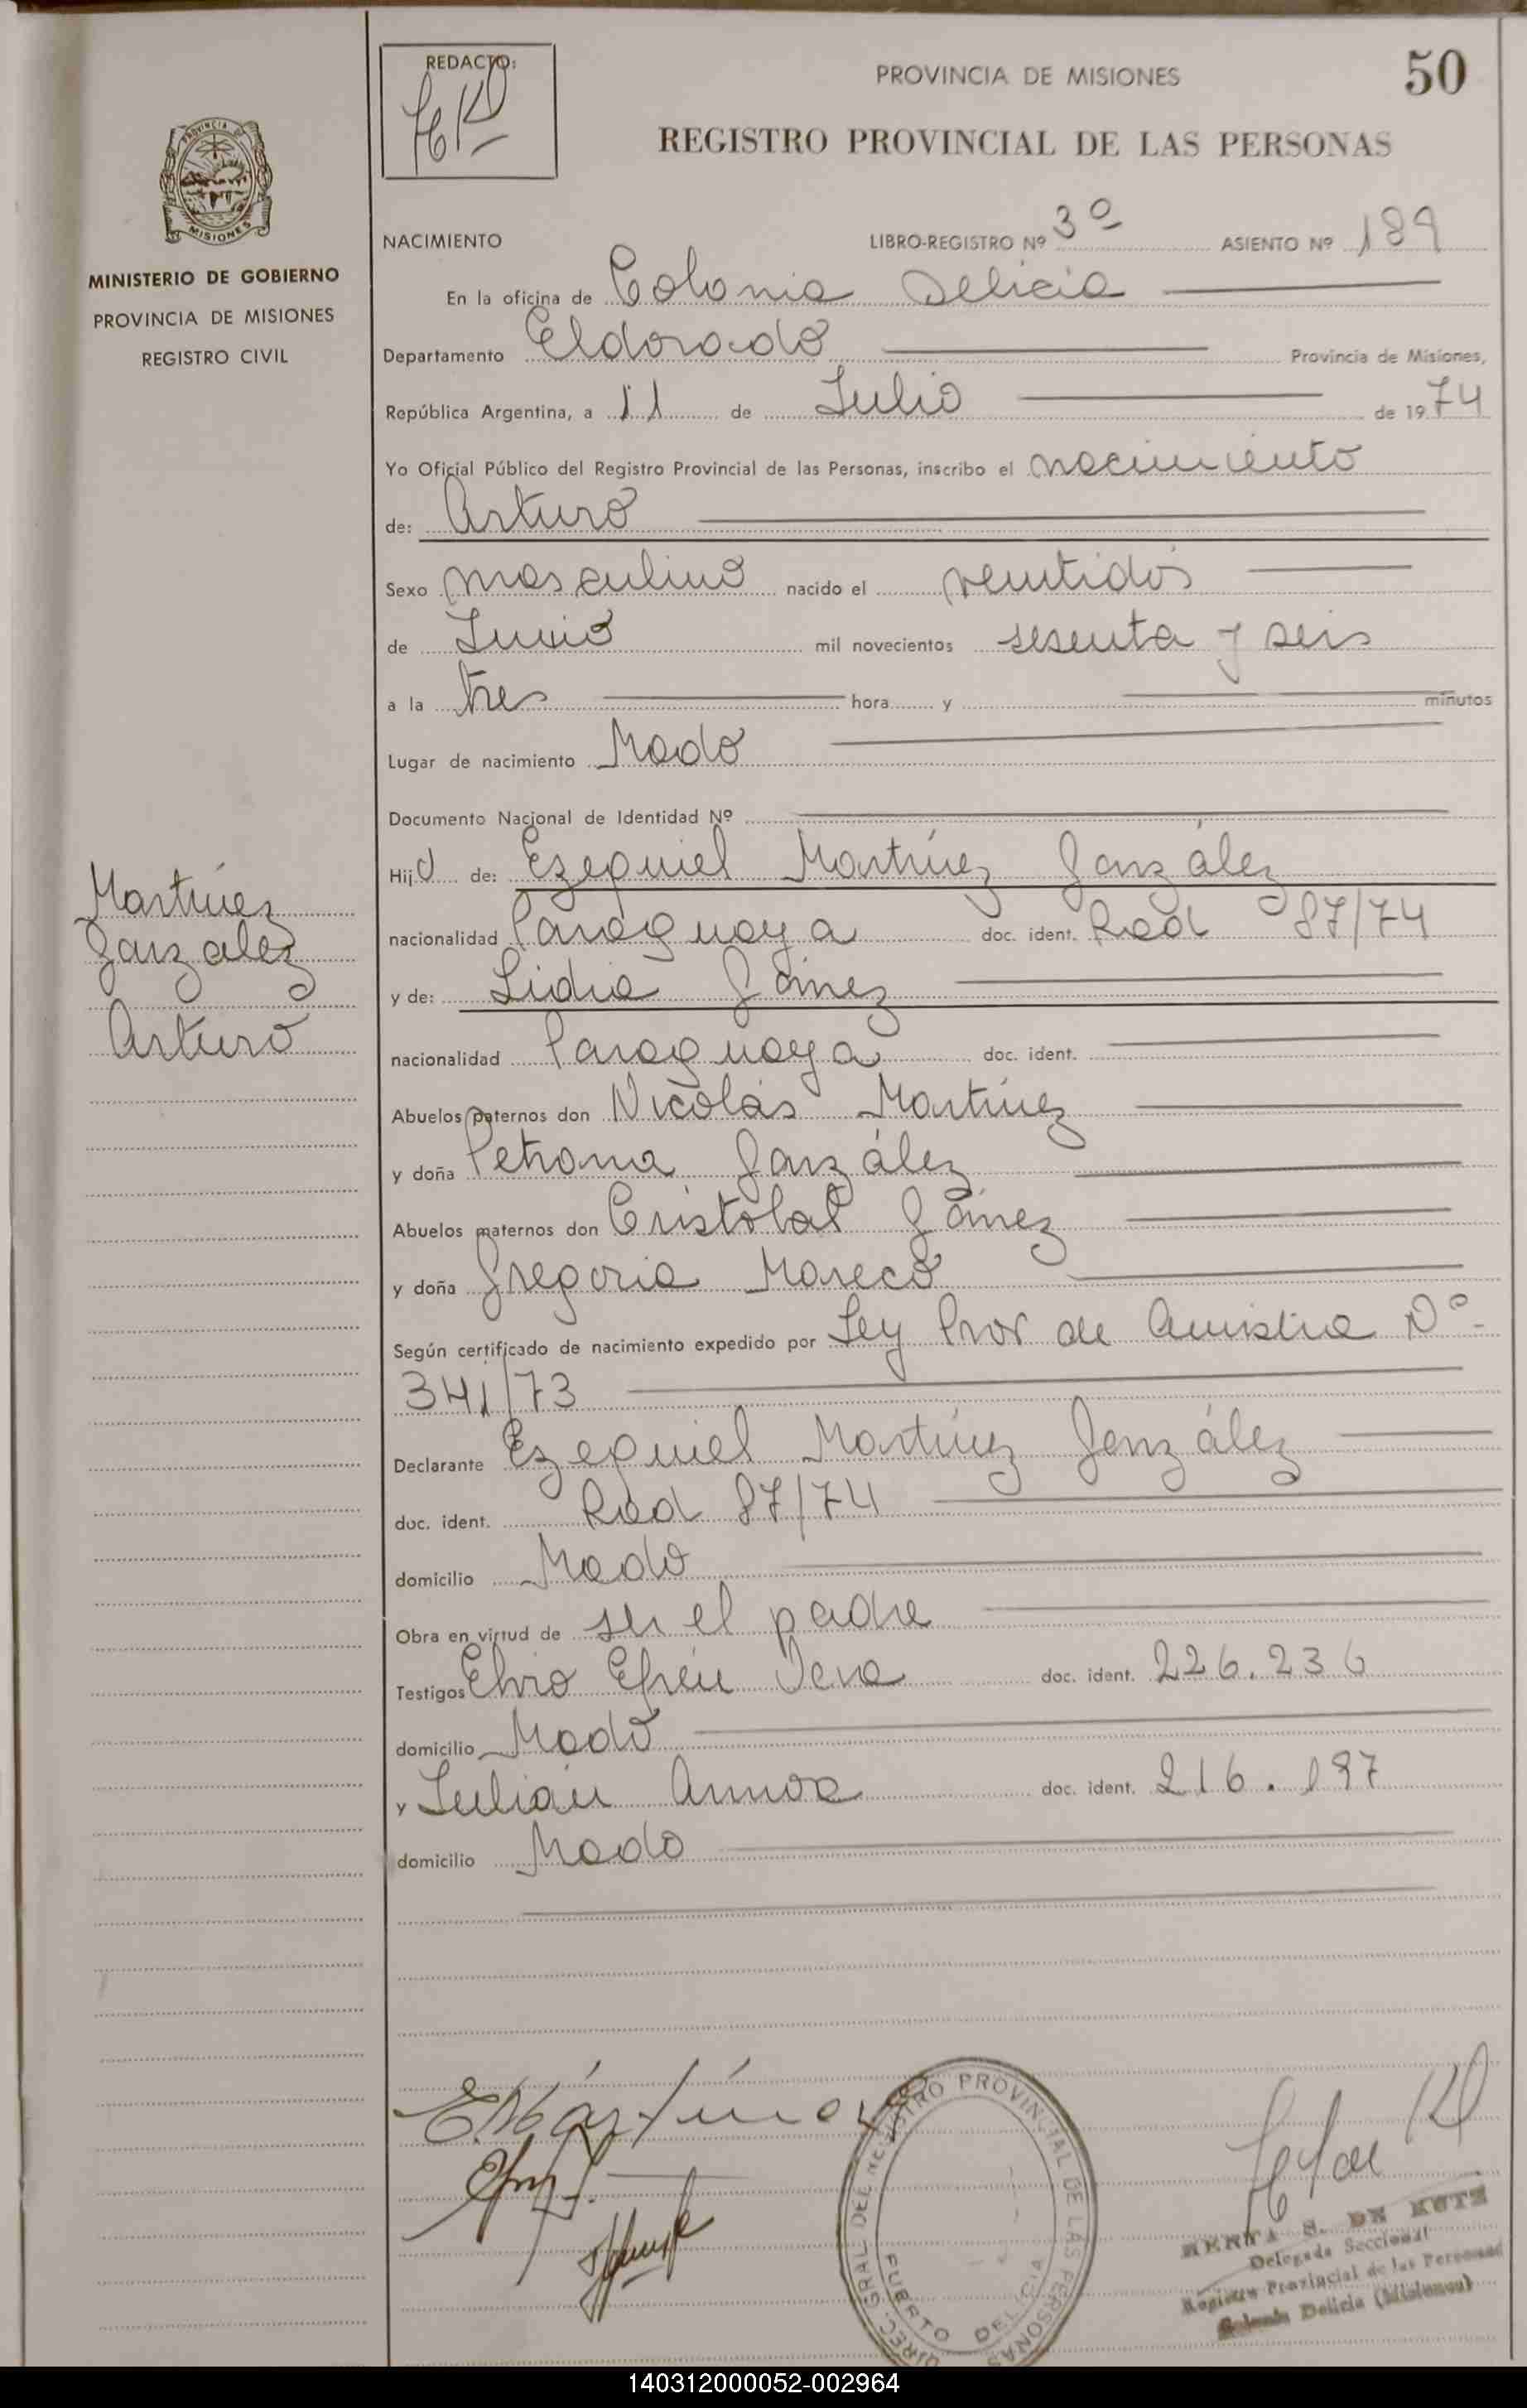 REDACTO:
PROVINCIA DE MISIONES
50
REGISTRO PROVINCIAL DE LAS PERSONAS
MISIONES
MINISTERIO DE GOBIERNO
PROVINCIA DE MISIONES
REGISTRO CIVIL
NACIMIENTO LIBRO-REGISTRO Nº 3º ASIENTO Nº 189
En la oficina de Colonia Delicia
Departamento Eldorado Provincia de Misiones,
República Argentina, a 11 de Julio de 1974
Yo Oficial Público del Registro Provincial de las Personas, inscribo el nacimiento
de: Arturo
Sexo masculino nacido el veintidós
de Junio mil novecientos sesenta y seis
a la tres hora y minutos
Lugar de nacimiento Mado
Documento Nacional de Identidad Nº
Hijo de: Ezequiel Martínez González
nacionalidad Paraguaya doc. ident. Rad 87/74
y de: Lidia
nacionalidad Paraguaya doc. ident.
Abuelos paternos don Nicolás Martínez
y doña Petrona González
Abuelos maternos don Cristobal
y doña Gregoria Mareco
Según certificado de nacimiento expedido por Ley Prov de Amistia Nº
341/73
Declarante Ezequiel Martínez González
doc. ident. Rad 87/74
domicilio Mado
Obra en virtud de ser el padre
Testigos Elvio Efrén doc. ident. 226.236
domicilio Mado
y Julián doc. ident. 216.197
domicilio Mado
Martínez
González
Arturo
E. Martínez
DIREC. GRAL DEL REGISTRO PROVINCIAL DE LAS PERSONAS
PUERTO DELICIA
S. DE KUTZ
Delegada Seccional
Registro Provincial de las Personas
Colonia Delicia (Misiones)
140312000052-002964